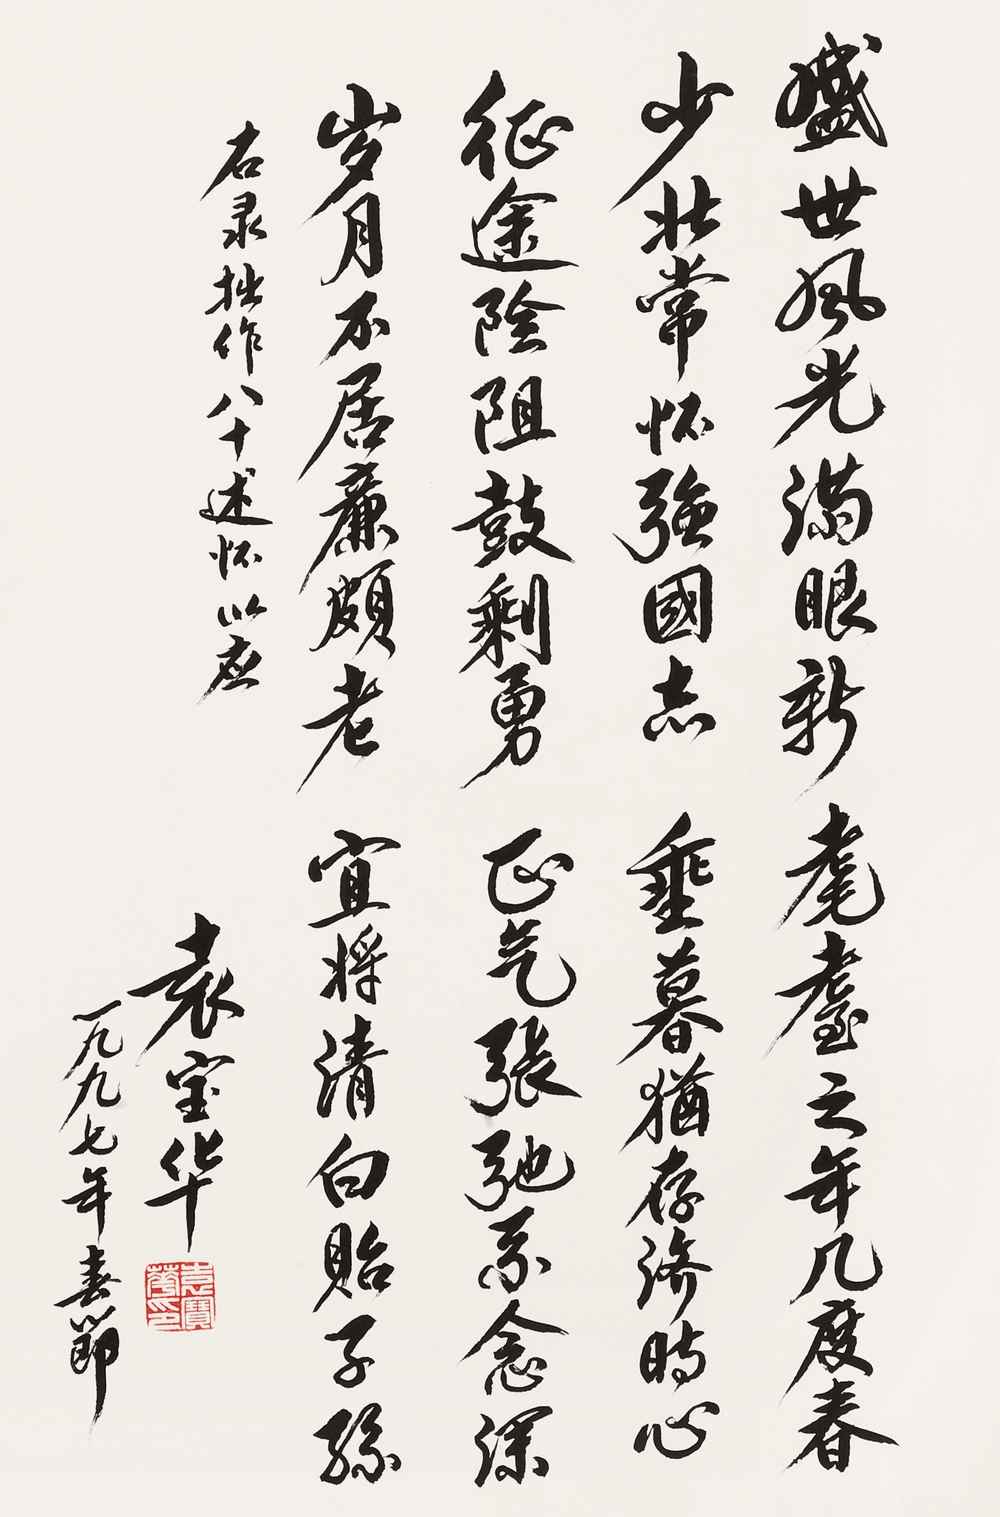 盛世风光满眼新 耄耋之年几度春
少壮常怀强國志 垂暮犹存济時心
征途险阻鼓剩勇 正气張弛系念深
岁月不居廉颇老 宜将清白贻子孫
右录拙作八十述怀以应
袁宝华
一九九七年春節
袁寶華印